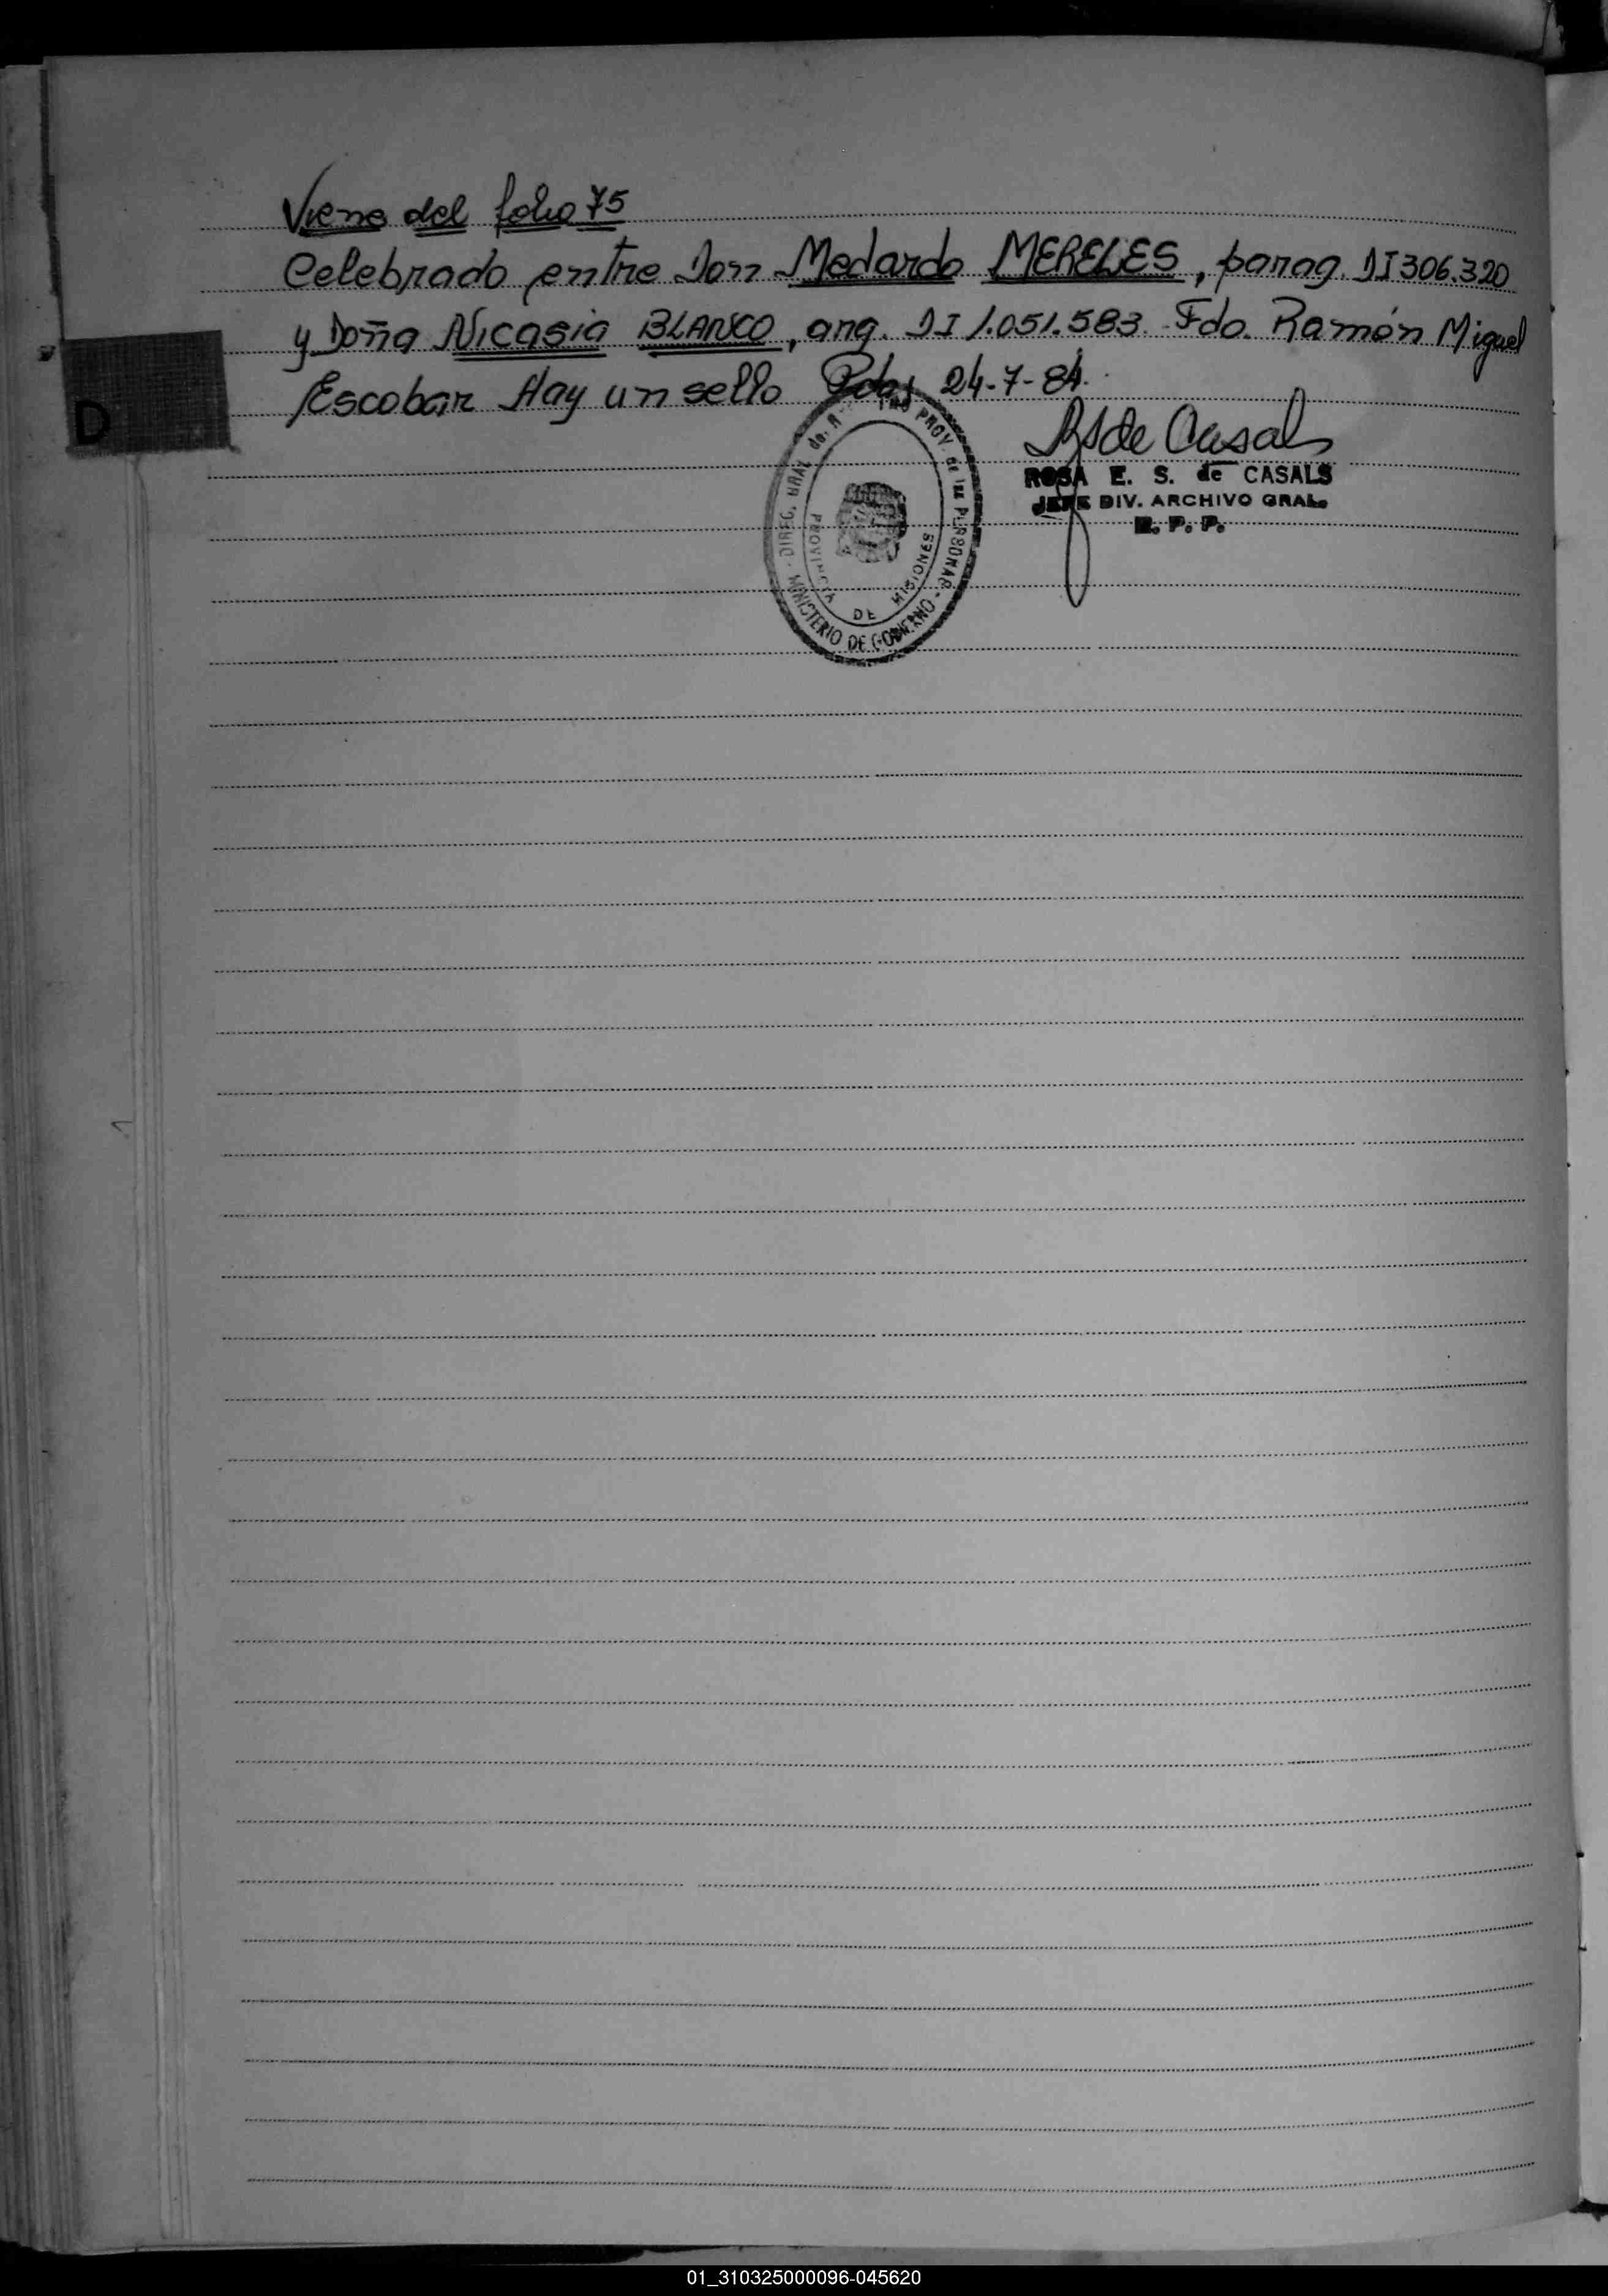 Viene del folio 75
Celebrado entre Don Medardo MERELES, parag. DI 306.320
y Doña Nicasia BLANCO, arg. DI 1.051.583. Fdo. Ramón Miguel
Escobar Hay un sello Pdas 24-7-84.
RS de Casals
ROSA E. S. de CASALS
JEFE DIV. ARCHIVO GRAL.
R. P. P.
DIREC. GRAL de. R PROV. de las PERSONAS
MINISTERIO DE GOBIERNO
PROVINCIA DE MISIONES
D
01_310325000096-045620